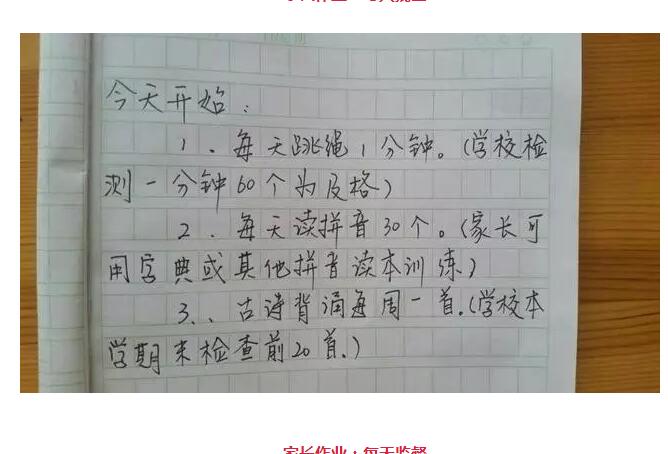 今天开始：
1、每天跳绳1分钟。（学校检
测一分钟60个为及格）
2、每天读拼音30个。（家长可
用字典或其他拼音读本训练）
3、古诗背诵每周一首.（学校本
学期末检查前20首.）
家长作业：每天监督